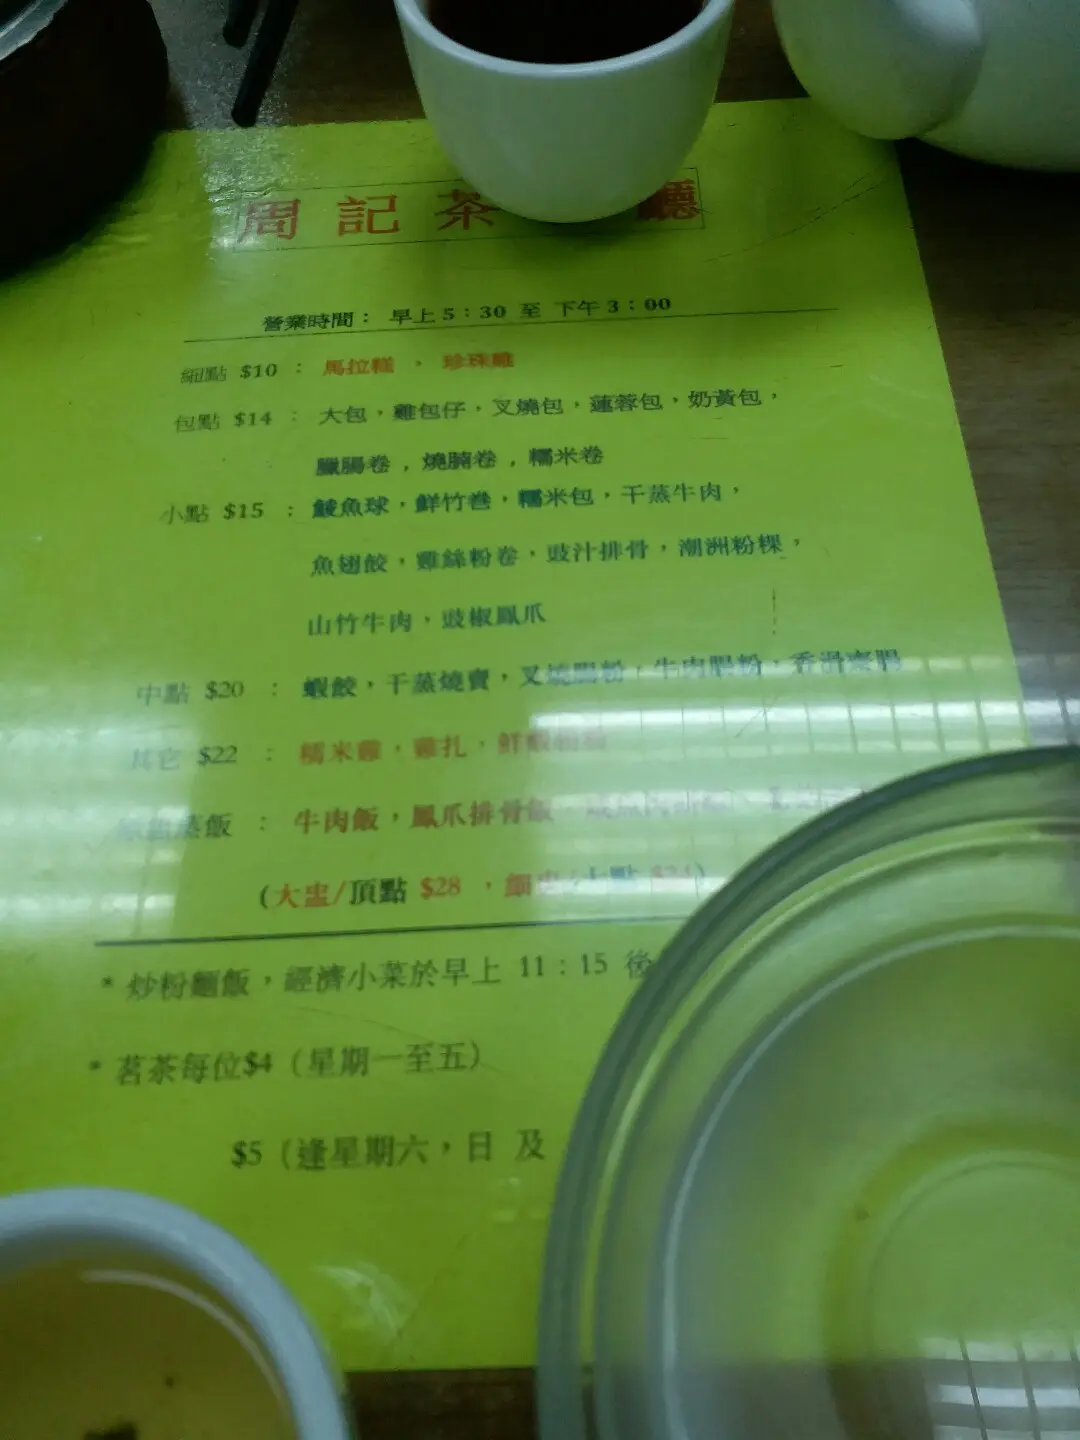 周記茶 廳
營業時間： 早上 5：30 至 下午 3：00
細點 $10 ： 馬拉糕 ， 珍珠雞
包點 $14 ： 大包，雞包仔，叉燒包，蓮蓉包，奶黃包，
臘腸卷，燒腩卷，糯米卷
小點 $15 ： 鯪魚球，鮮竹卷，糯米包，干蒸牛肉，
魚翅餃，雞絲粉卷，豉汁排骨，潮洲粉粿，
山竹牛肉，豉椒鳳爪
中點 $20 ： 蝦餃，干蒸燒賣，叉燒腸粉，牛肉腸粉，香滑
其它 $22 ： 糯米雞，雞扎，鮮蝦
蒸飯 ： 牛肉飯，鳳爪排骨飯
(大盅/頂點 $28 ，細
* 炒粉麵飯，經濟小菜於早上 11：15 後
* 茗茶每位$4（星期一至五）
$5（逢星期六，日 及